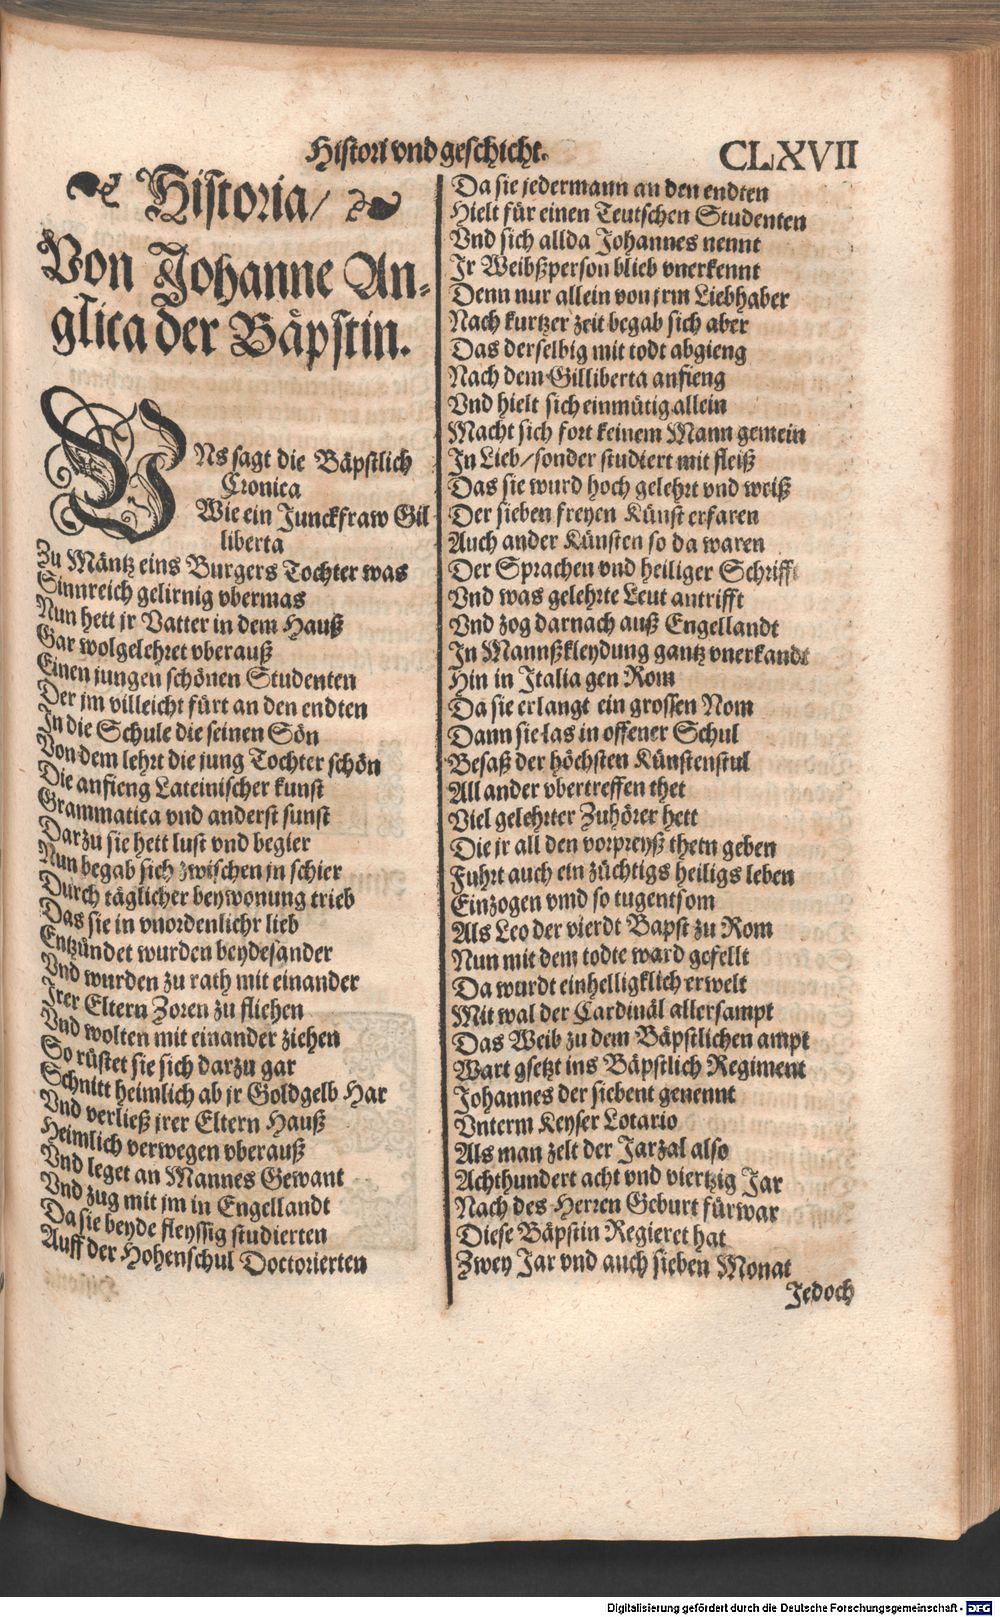 Histori vnd geschicht.
CLXVII
Historia/
Von Johanne An-
glica der Bäpstin.
VNs sagt die Bäpstlich
Cronica
Wie ein Junckfraw Gil
liberta
Zu Mäntz eins Burgers Tochter was
Sinnreich gelirnig vbermas
Nun hett jr Vatter in dem Hauß
Gar wolgelehret vberauß
Einen jungen schönen Studenten
Der jm villeicht fürt an den endten
In die Schule die seinen Sön
Von dem lehrt die jung Tochter schön
Die anfieng Lateinischer kunst
Grammatica vnd anderst sunst
Darzu sie hett lust vnd begier
Nun begab sich zwischen jn schier
Durch täglicher beywonung trieb
Das sie in vnordenlichr lieb
Entzündet wurden beydesander
Vnd wurden zu rath mit einander
Irer Eltern Zoren zu fliehen
Vnd wolten mit einander ziehen
So rüstet sie sich darzu gar
Schnitt heimlich ab jr Goldgelb Har
Vnd verließ jrer Eltern Hauß
Heimlich verwegen vberauß
Vnd leget an Mannes Gewant
Vnd zug mit jm in Engellandt
Da sie beyde fleyssig studierten
Auff der Hohenschul Doctorierten
Da sie jedermann an den endten
Hielt für einen Teutschen Studenten
Vnd sich allda Johannes nennt
Ir Weibßperson blieb vnerkennt
Denn nur allein von jrm Liebhaber
Nach kurtzer zeit begab sich aber
Das derselbig mit todt abgieng
Nach dem Gilliberta anfieng
Vnd hielt sich einmütig allein
Macht sich fort keinem Mann gemein
In Lieb/sonder studiert mit fleiß
Das sie wurd hoch gelehrt vnd weiß
Der sieben freyen Künst erfaren
Auch ander Künsten so da waren
Der Sprachen vnd heiliger Schrifft
Vnd was gelehrte Leut antrifft
Vnd zog darnach auß Engellandt
In Mannßkleydung gantz vnerkandt
Hin in Italia gen Rom
Da sie erlangt ein grossen Nom
Dann sie las in offener Schul
Besaß der höchsten Künstenstul
All ander vbertreffen thet
Viel gelehrter Zuhörer hett
Die jr all den vorpreyß thetn geben
Fuhrt auch ein züchtigs heiligs leben
Einzogen vnnd so tugentsom
Als Leo der vierdt Bapst zu Rom
Nun mit dem todte ward gefellt
Da wurdt einhelligklich erwelt
Mit wal der Cardinäl allersampt
Das Weib zu dem Bäpstlichen ampt
Wart gsetzt ins Bäpstlich Regiment
Johannes der siebent genennt
Vnterm Keyser Lotario
Als man zelt der Jarzal also
Achthundert acht vnd viertzig Jar
Nach des Herren Geburt fürwar
Diese Bäpstin Regieret hat
Zwey Jar vnd auch sieben Monat
Jedoch
Digitalisierung gefördert durch die Deutsche Forschungsgemeinschaft - DFG